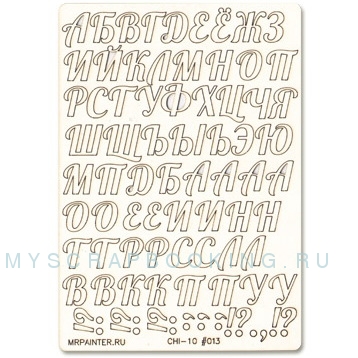 АБВГДЕЁЖЗ
ИЙКЛМНОП
РСТУФХЦЧЯ
ШЩЪЫЬЭЮ
МПДБАААА
ООЕЕИИНН
ТТРРССЛЛ
MYSCRAPBOOKING.RU
ВВККППУУ
!?!?!?::;;!?.,:!?
MRPAINTER.RU CHI-10 #013